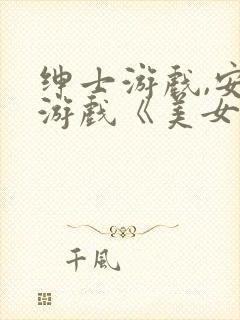 绅士游戏,安
游戏《美女
千风